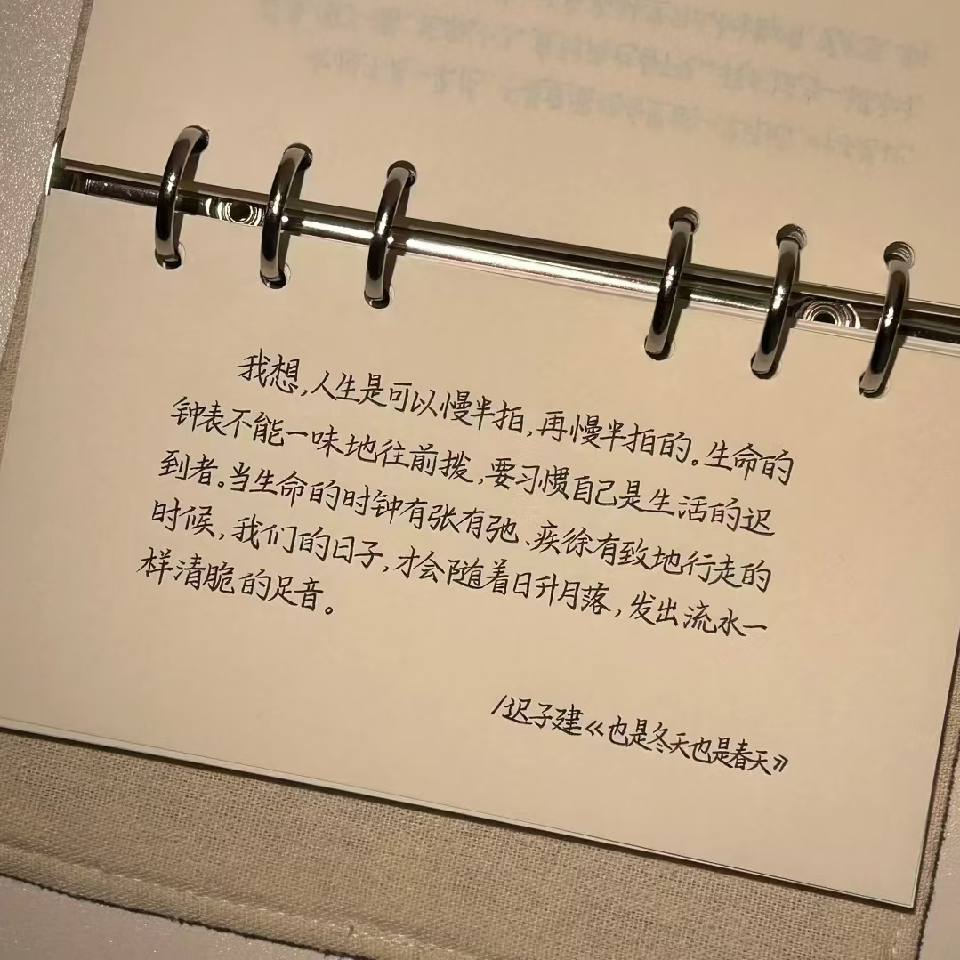 我想,人生是可以慢半拍,再慢半拍的。生命的
钟表不能一味地往前拨,要习惯自己是生活的迟
到者。当生命的时钟有张有弛、疾徐有致地行走的
时候,我们的日子,才会随着日升月落,发出流水一
样清脆的足音。
/迟子建《也是冬天也是春天》